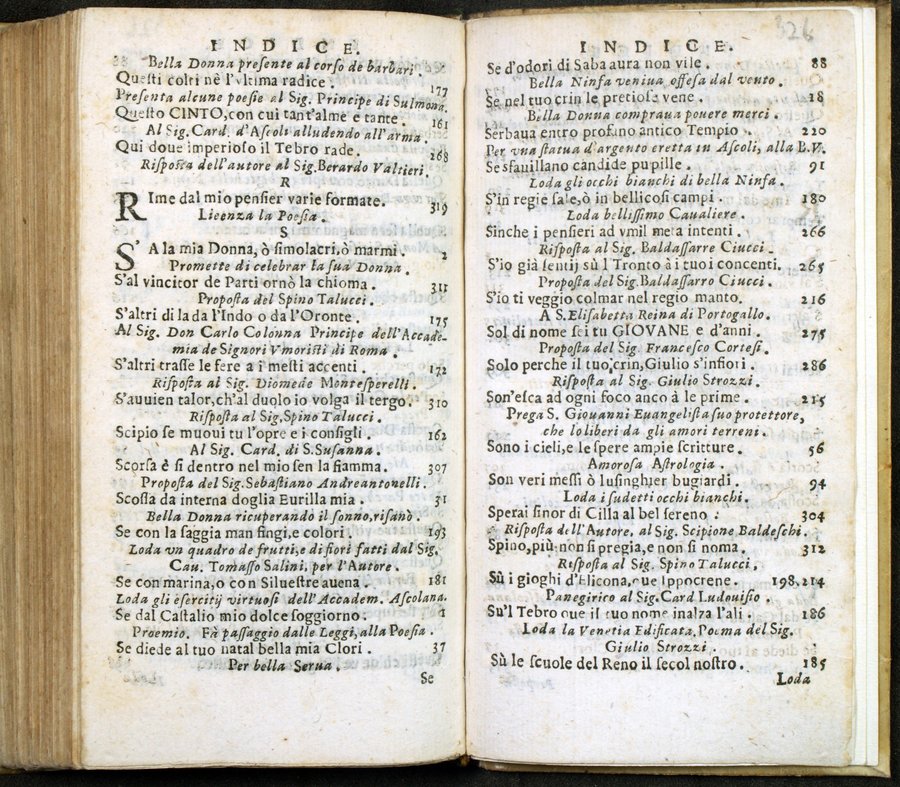 INDICE.
Bella Donna presente al corso de barbari.
Questi colti nè l'vltima radice. 177
Presenta alcune poesie al Sig. Principe di Sulmona.
Questo CINTO, con cui tant'alme e tante. 161
Al Sig. Card. d'Ascoli alludendo all'arma.
Qui doue imperioso il Tebro rade. 268
Risposta dell'autore al Sig. Berardo Valtieri.
R
RIme dal mio pensier varie formate. 319
Licenza la Poesia.
S
S'A la mia Donna, ò simolacri, ò marmi. 2
Promette di celebrar la sua Donna.
S'al vincitor de Parti ornò la chioma. 311
Proposta del Spino Talucci.
S'altri di la da l'Indo o da l'Oronte. 175
Al Sig. Don Carlo Colonna Principe dell'Accade-
mia de Signori Vmoristi di Roma.
S'altri trasse le fere a i mesti accenti. 172
Risposta al Sig. Diomede Montesperelli.
S'auuien talor, ch'al duolo io volga il tergo. 310
Risposta al Sig, Spino Talucci.
Scipio se muoui tu l'opre e i consigli. 162
Al Sig. Card. di S. Susanna.
Scorsa è sì dentro nel mio sen la fiamma. 307
Proposta del Sig. Sebastiano Andreantonelli.
Scossa da interna doglia Eurilla mia. 31
Bella Donna ricuperando il sonno, risanò.
Se con la saggia man fingi, e colori. 193
Loda vn quadro de frutti, e di fiori fatti dal Sig.
Cau. Tomasso Salini, per l'Autore.
Se con marina, o con Siluestre auena. 181
Loda gli esercitij virtuosi dell'Accadem. Ascolana.
Se dal Castalio mio dolce soggiorno. 1
Proemio. Fà passaggio dalle Leggi, alla Poesia.
Se diede al tuo natal bella mia Clori. 37
Per bella Serua.
Se
326
INDICE.
Se d'odori di Saba aura non vile. 88
Bella Ninfa veniua offesa dal vento.
Se nel tuo crin le pretiose vene. 18
Bella Donna compraua pouere merci.
Serbaua entro profano antico Tempio. 220
Per vna statua d'argento eretta in Ascoli, alla B.V.
Se sfauillano candide pupille. 91
Loda gli occhi bianchi di bella Ninfa.
S'in regie sale, ò in bellicosi campi. 180
Loda bellissimo Caualiere.
Sinche i pensieri ad vmil meta intenti. 266
Risposta al Sig. Baldassarre Ciucci.
S'io già sentij sù l Tronto à i tuoi concenti. 265
Proposta del Sig. Baldassarro Ciucci.
S'io ti veggio colmar nel regio manto. 216
A S. Elisabetta Reina di Portogallo.
Sol di nome sei tu GIOVANE e d'anni. 275
Proposta del Sig. Francesco Cortesi.
Solo perche il tuo, crin, Giulio s'infiori. 286
Risposta al Sig. Giulio Strozzi.
Son'esca ad ogni foco anco à le prime. 215
Prega S. Giouanni Euangelista suo protettore,
che lo liberi da gli amori terreni.
Sono i cieli, e le spere ampie scritture. 56
Amorosa Astrologia.
Son veri messi ò lusinghier bugiardi. 94
Loda i sudetti occhi bianchi.
Sperai sinor di Cilla al bel sereno: 304
Risposta dell'Autore. al Sig. Scipione Baldeschi.
Spino, più non si pregia, e non si noma. 312
Risposta al Sig. Spino Talucci.
Sù i gioghi d'Elicona, oue Ippocrene. 198, 214
Panegirico al Sig. Card Ludouisio.
Su'l Tebro oue il tuo nome inalza l'ali. 186
Loda la Venetia Edificata, Poema del Sig.
Giulio Strozzi.
Sù le scuole del Reno il secol nostro. 185
Loda